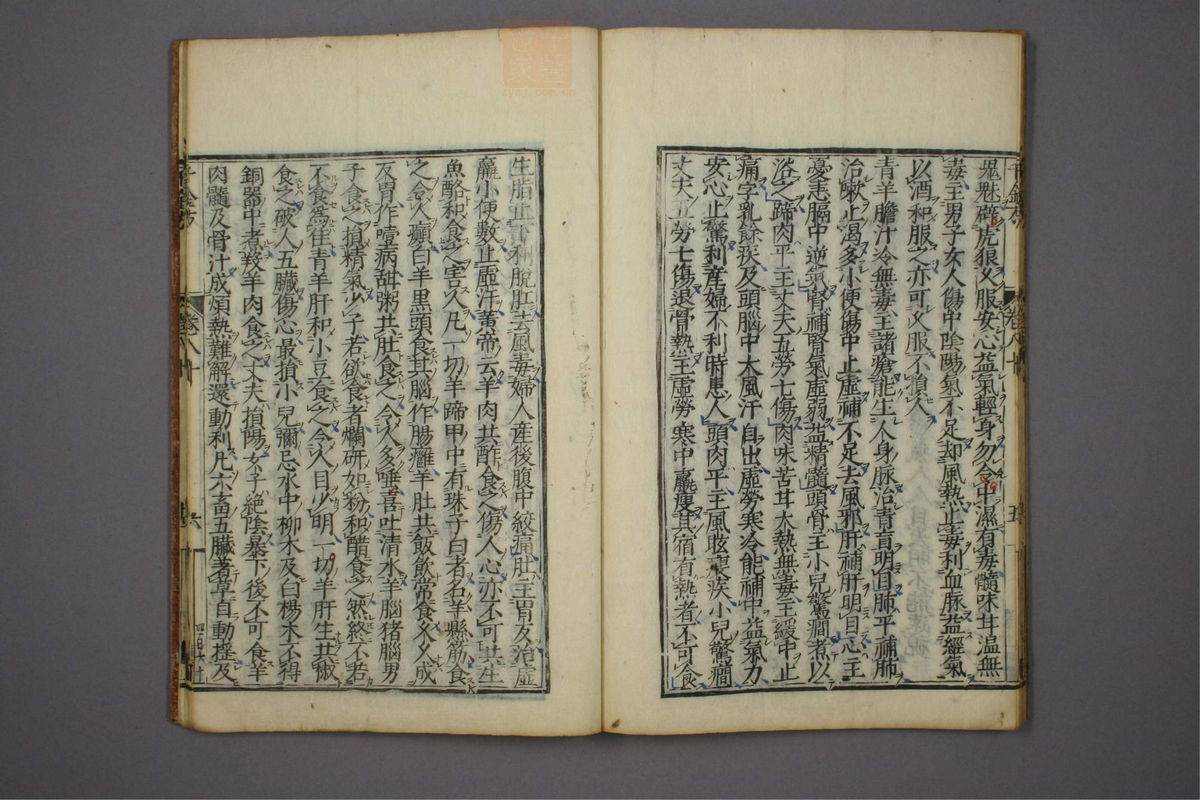 鬼魅辟虎狼久服安心益氣輕身勿令中濕有毒髓味甘溫無
毒主男子女人傷中陰陽氣不足却風熱止毒利血脉益經氣
以酒和服之亦可久服不損人
青羊膽汁冷無毒主諸瘡能生人身脉治青盲明目肺平補肺
治嗽止渴多小便傷中止虛補不足去風邪肝補肝明目心主
憂恚膈中逆氣腎補腎氣虛弱益精髓頭骨主小兒驚癎煮以
浴之蹄肉平主丈夫五勞七傷肉味苦甘大熱無毒主緩中止
痛字乳餘疾及頭腦中大風汗自出虛勞寒冷能補中益氣力
安心止驚利產婦不利時患人頭肉平主風眩瘦疾小兒驚癎
丈夫五勞七傷退骨熱主虛勞寒中羸瘦其宿有熱者不可食
生脂止下利脫肛去風毒婦人產後腹中絞痛肚主胃反治虛
羸小便數止虛汗黃帝云羊肉共酢食之傷人心亦不可共生
魚酪和食之害人凡一切羊蹄甲中有珠子白者名羊懸筋食
之令人癲白羊黑頭食其腦作腸癰羊肚共飯飲常食久久成
反胃作噎病甜粥共肚食之令人多唾喜吐清水羊腦猪腦男
子食之損精氣少子若欲食者爛研如粉和醋食之然終不若
不食爲佳青羊肝和小豆食之令人目少明一切羊肝生共椒
食之破人五臟傷心最損小兒彌忌水中柳木及白楊木不得
銅器中煮羖羊肉食之丈夫損陽女子絕陰暴下後不可食羊
肉髓及骨汁成煩熱難解還動利凡六畜五臟著草自動搖及
千金方
卷八十
五
卷八十
六